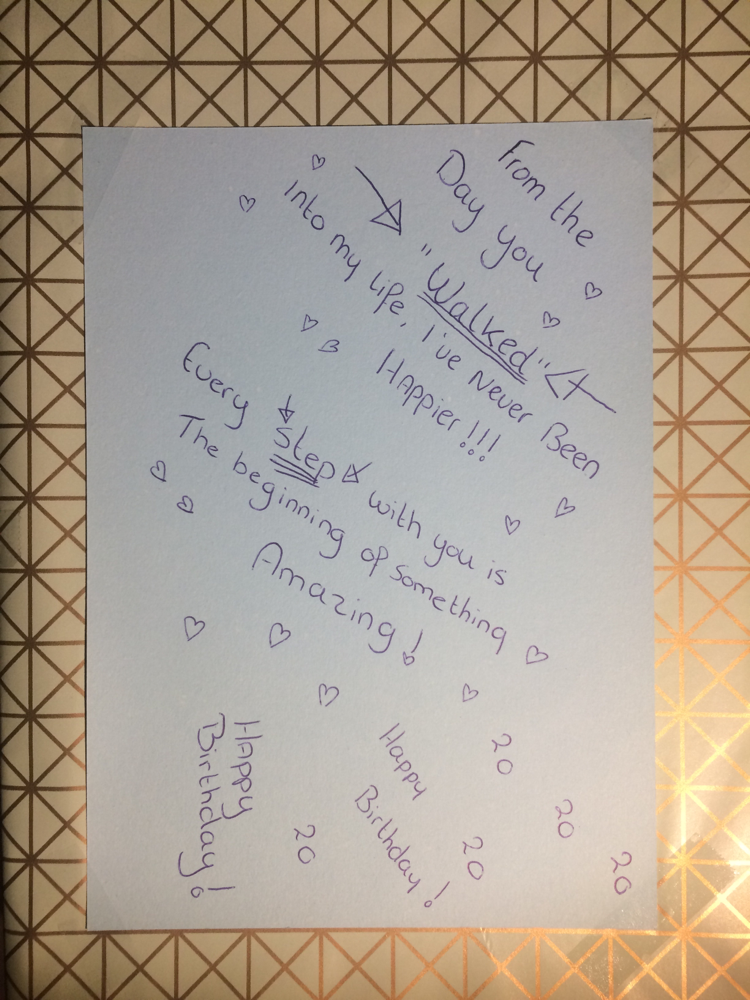 From the
Day you
"Walked"
into my life, I've Never Been
Happier!!!
Every Step with you is
The beginning of something
Amazing!
Happy
Birthday!
20
Happy
Birthday!
20
20
20
20